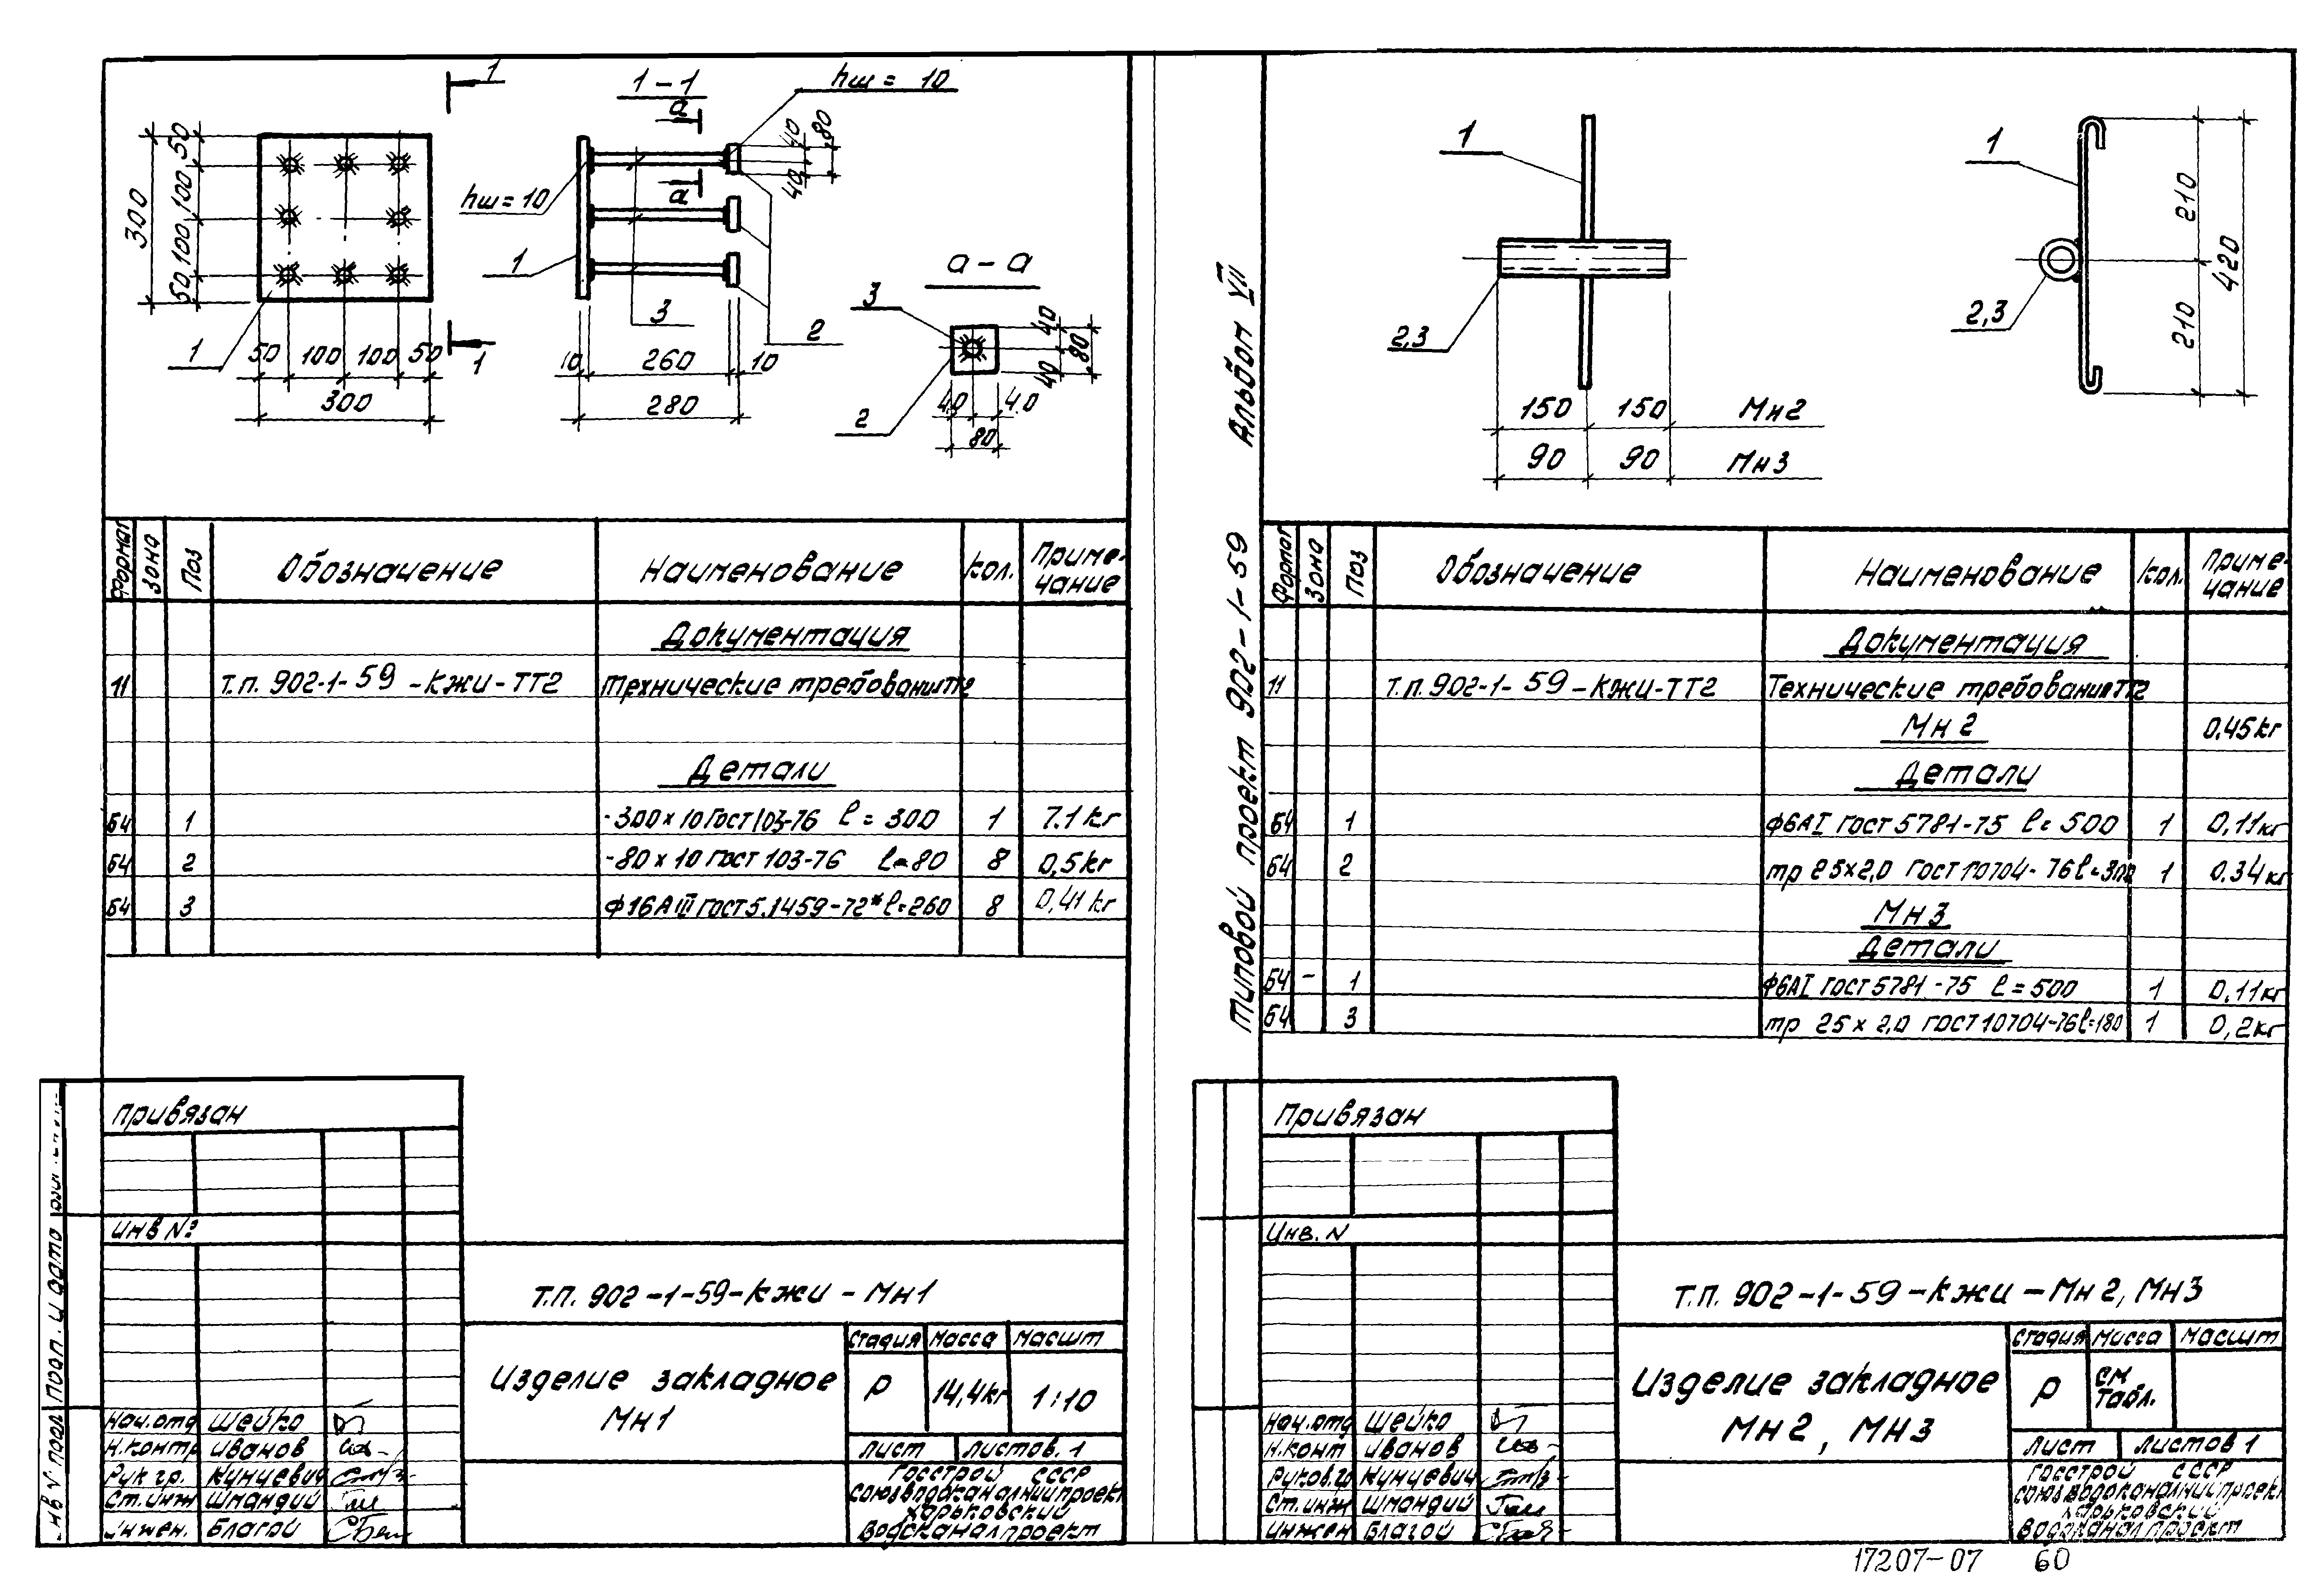 1
1-1
а
hш = 10
40
80
40
hш=10
а
50
100
100
50
300
1
50 100 100 50
300
1
1
3
2
10 260 10
280
а-а
3
2
40
40
80
40 40
80
Формат Зона Поз Обозначение Наименование Кол. Приме-
чание
Документация
11 Т.П. 902-1-59-КЖИ-ТТ2 Технические требования ТТ2
Детали
Б4 1 -300×10 ГОСТ 103-76 ℓ=300 1 7.1 kг
Б4 2 -80×10 ГОСТ 103-76 ℓ=80 8 0,5kг
Б4 3 ф16АIII ГОСТ 5.1459-72* ℓ=260 8 0,41 kг
Привязан
Инв №
Т.П. 902-1-59-КЖИ-Мн1
Изделие закладное
Мн1
Стадия Масса Масшт
Р 14,4кг 1:10
Лист Листов. 1
Нач.отд Шейко
Н.контр Иванов
Рук гр. Кунцевич
Ст.инж Шмандий
Инжен. Благой
Госстрой СССР
Союзводоканалниипроект
Харьковский
Водоканалпроект
Подп. и дата
Типовой проект 902-1-59 Альбом VII
1
2,3
150 150 Мн2
90 90 Мн3
1
2,3
210
210
420
Формат Зона Поз Обозначение Наименование Кол. Приме-
чание
Документация
11 Т.П. 902-1-59-КЖИ-ТТ2 Технические требования ТТ2
Мн2 0,45kг
Детали
Б4 1 ф6АI ГОСТ 5781-75 ℓ=500 1 0,11кг
Б4 2 тр 25×2,0 ГОСТ 10704-76 ℓ=300 1 0.34кг
Мн3
Детали
Б4 - 1 ф6АI ГОСТ 5781-75 ℓ=500 1 0,11кг
Б4 3 тр 25×2,0 ГОСТ 10704-76 ℓ=180 1 0,2кг
Привязан
Инв. N
Т.П. 902-1-59-КЖИ-Мн2, Мн3
Изделие закладное
Мн2, Мн3
Стадия Масса Масшт
Р см
табл.
Лист Листов 1
Нач.отд Шейко
Н.конт Иванов
Руков.гр Кунцевич
Ст.инж Шмандий
Инжен Благой
Госстрой СССР
Союзводоканалниипроект
Харьковский
Водоканалпроект
17207-07 60